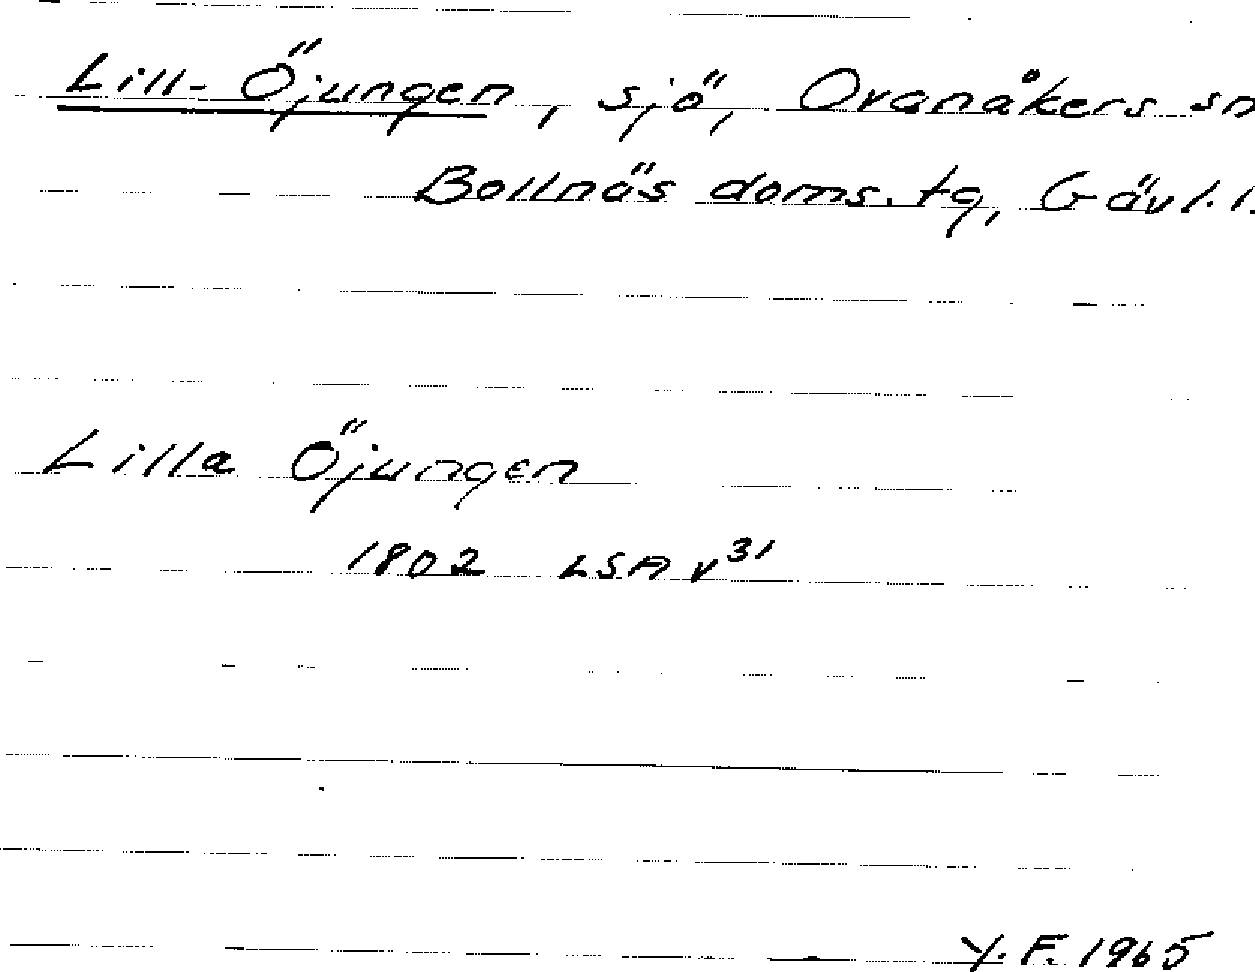 Lill-Öjungen, sjö, Ovanåkers sn
Bollnäs doms. tg, Gävl. l.
Lilla Öjungen
1802 LSA v³¹
Y. F. 1965